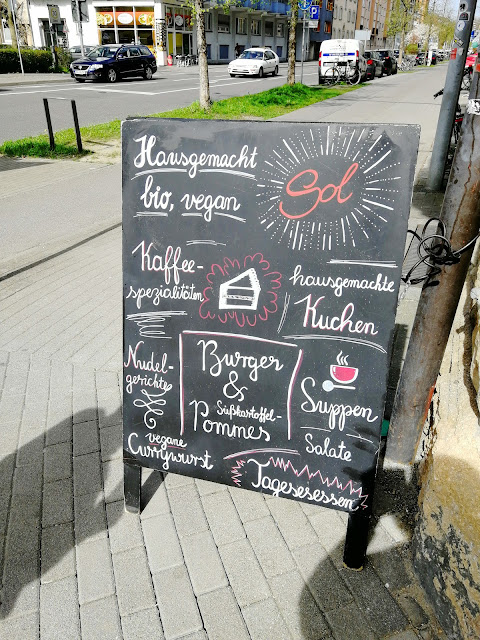 Hausgemacht
bio, vegan
Sol
Kaffee-
spezialitäten
hausgemachte
Kuchen
Nudel-
gerichte
Burger
&
Süßkartoffel-
Pommes
Suppen
Salate
vegane
Currywurst
Tagesessen
P